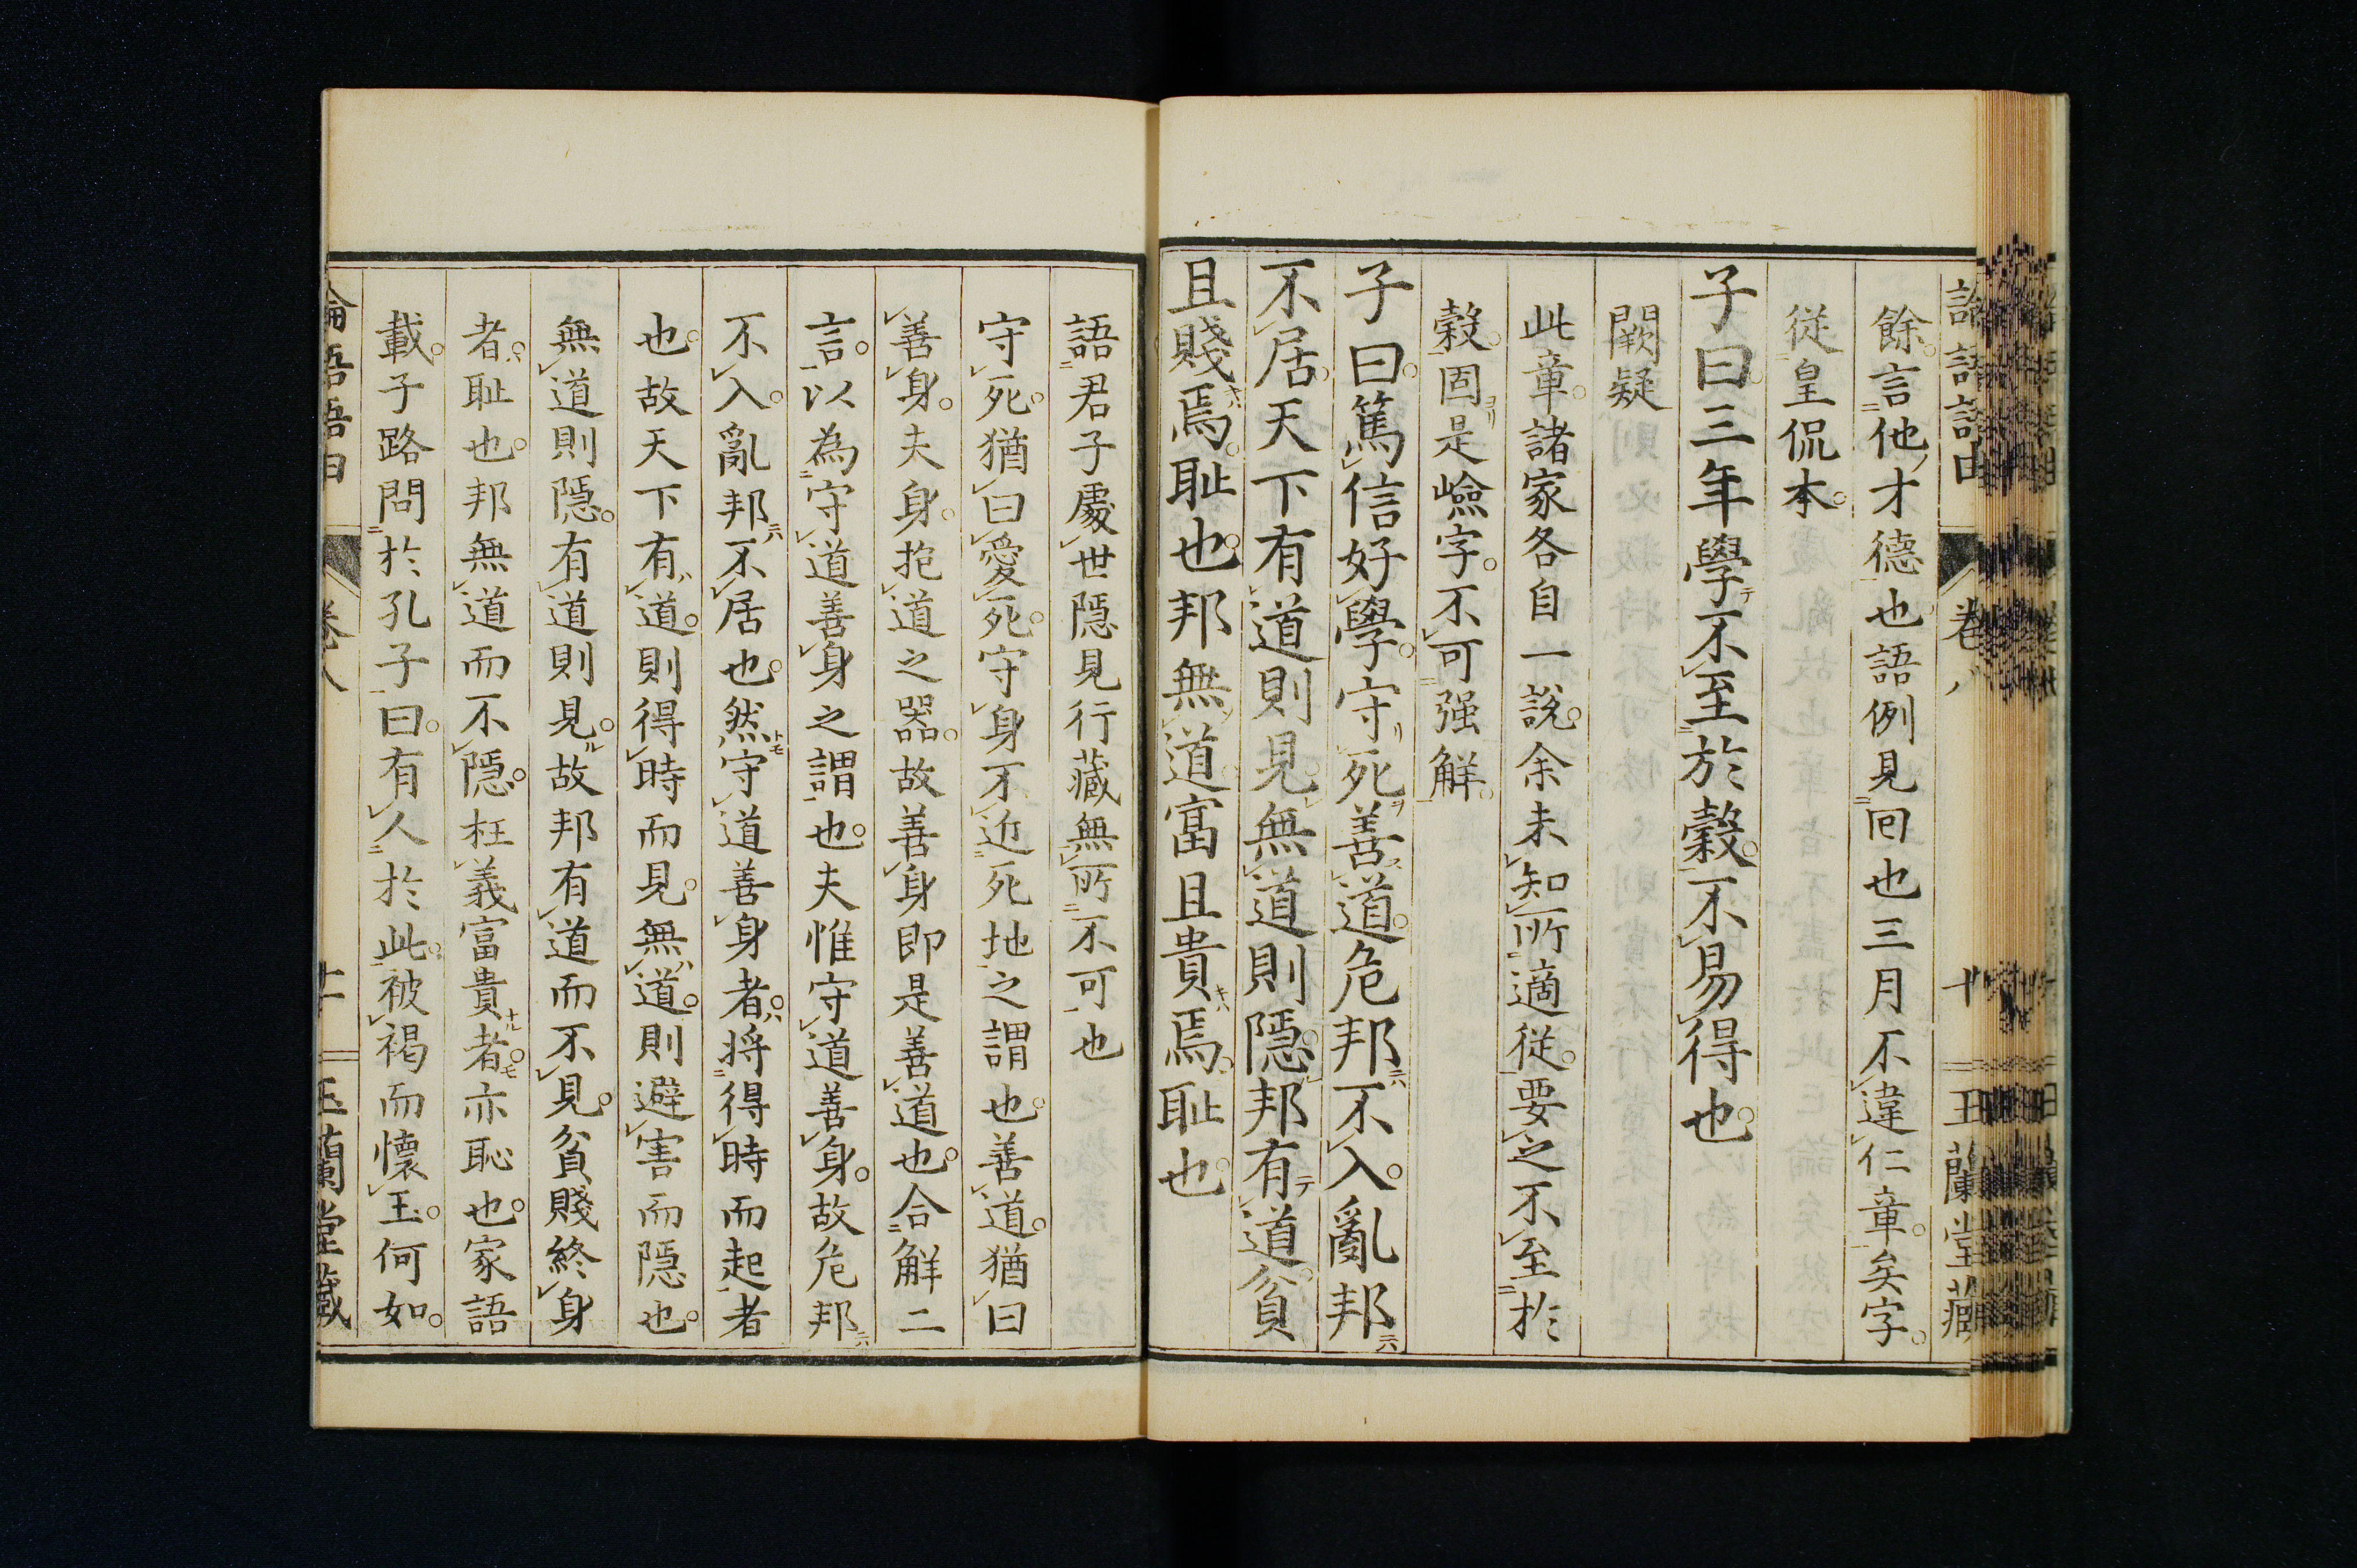 餘言他才德也語例見回也三月不違仁章矣字
從皇侃本
子曰三年學不至於穀不易得也
闕疑
此章諸家各自一說余未知所適從要之不至於
穀固是嶮字不可强解
子曰篤信好學守死善道危邦不入亂邦
不居天下有道則見無道則隱邦有道貧
且賤焉耻也邦無道富且貴焉耻也
語君子處世隱見行藏無所不可也
守死猶曰愛死守身不近死地之謂也善道猶曰
善身夫身抱道之器故善身即是善道也合解二
言以為守道善身之謂也夫惟守道善身故危邦
不入亂邦不居也然守道善身者將得時而起者
也故天下有道則得時而見無道則避害而隱也
無道則隱有道則見故邦有道而不見貧賤終身
者耻也邦無道而不隱枉義富貴者亦恥也家語
載子路問於孔子曰有人於此被褐而懷玉何如
論語語由 卷八 十一 玉蘭堂藏